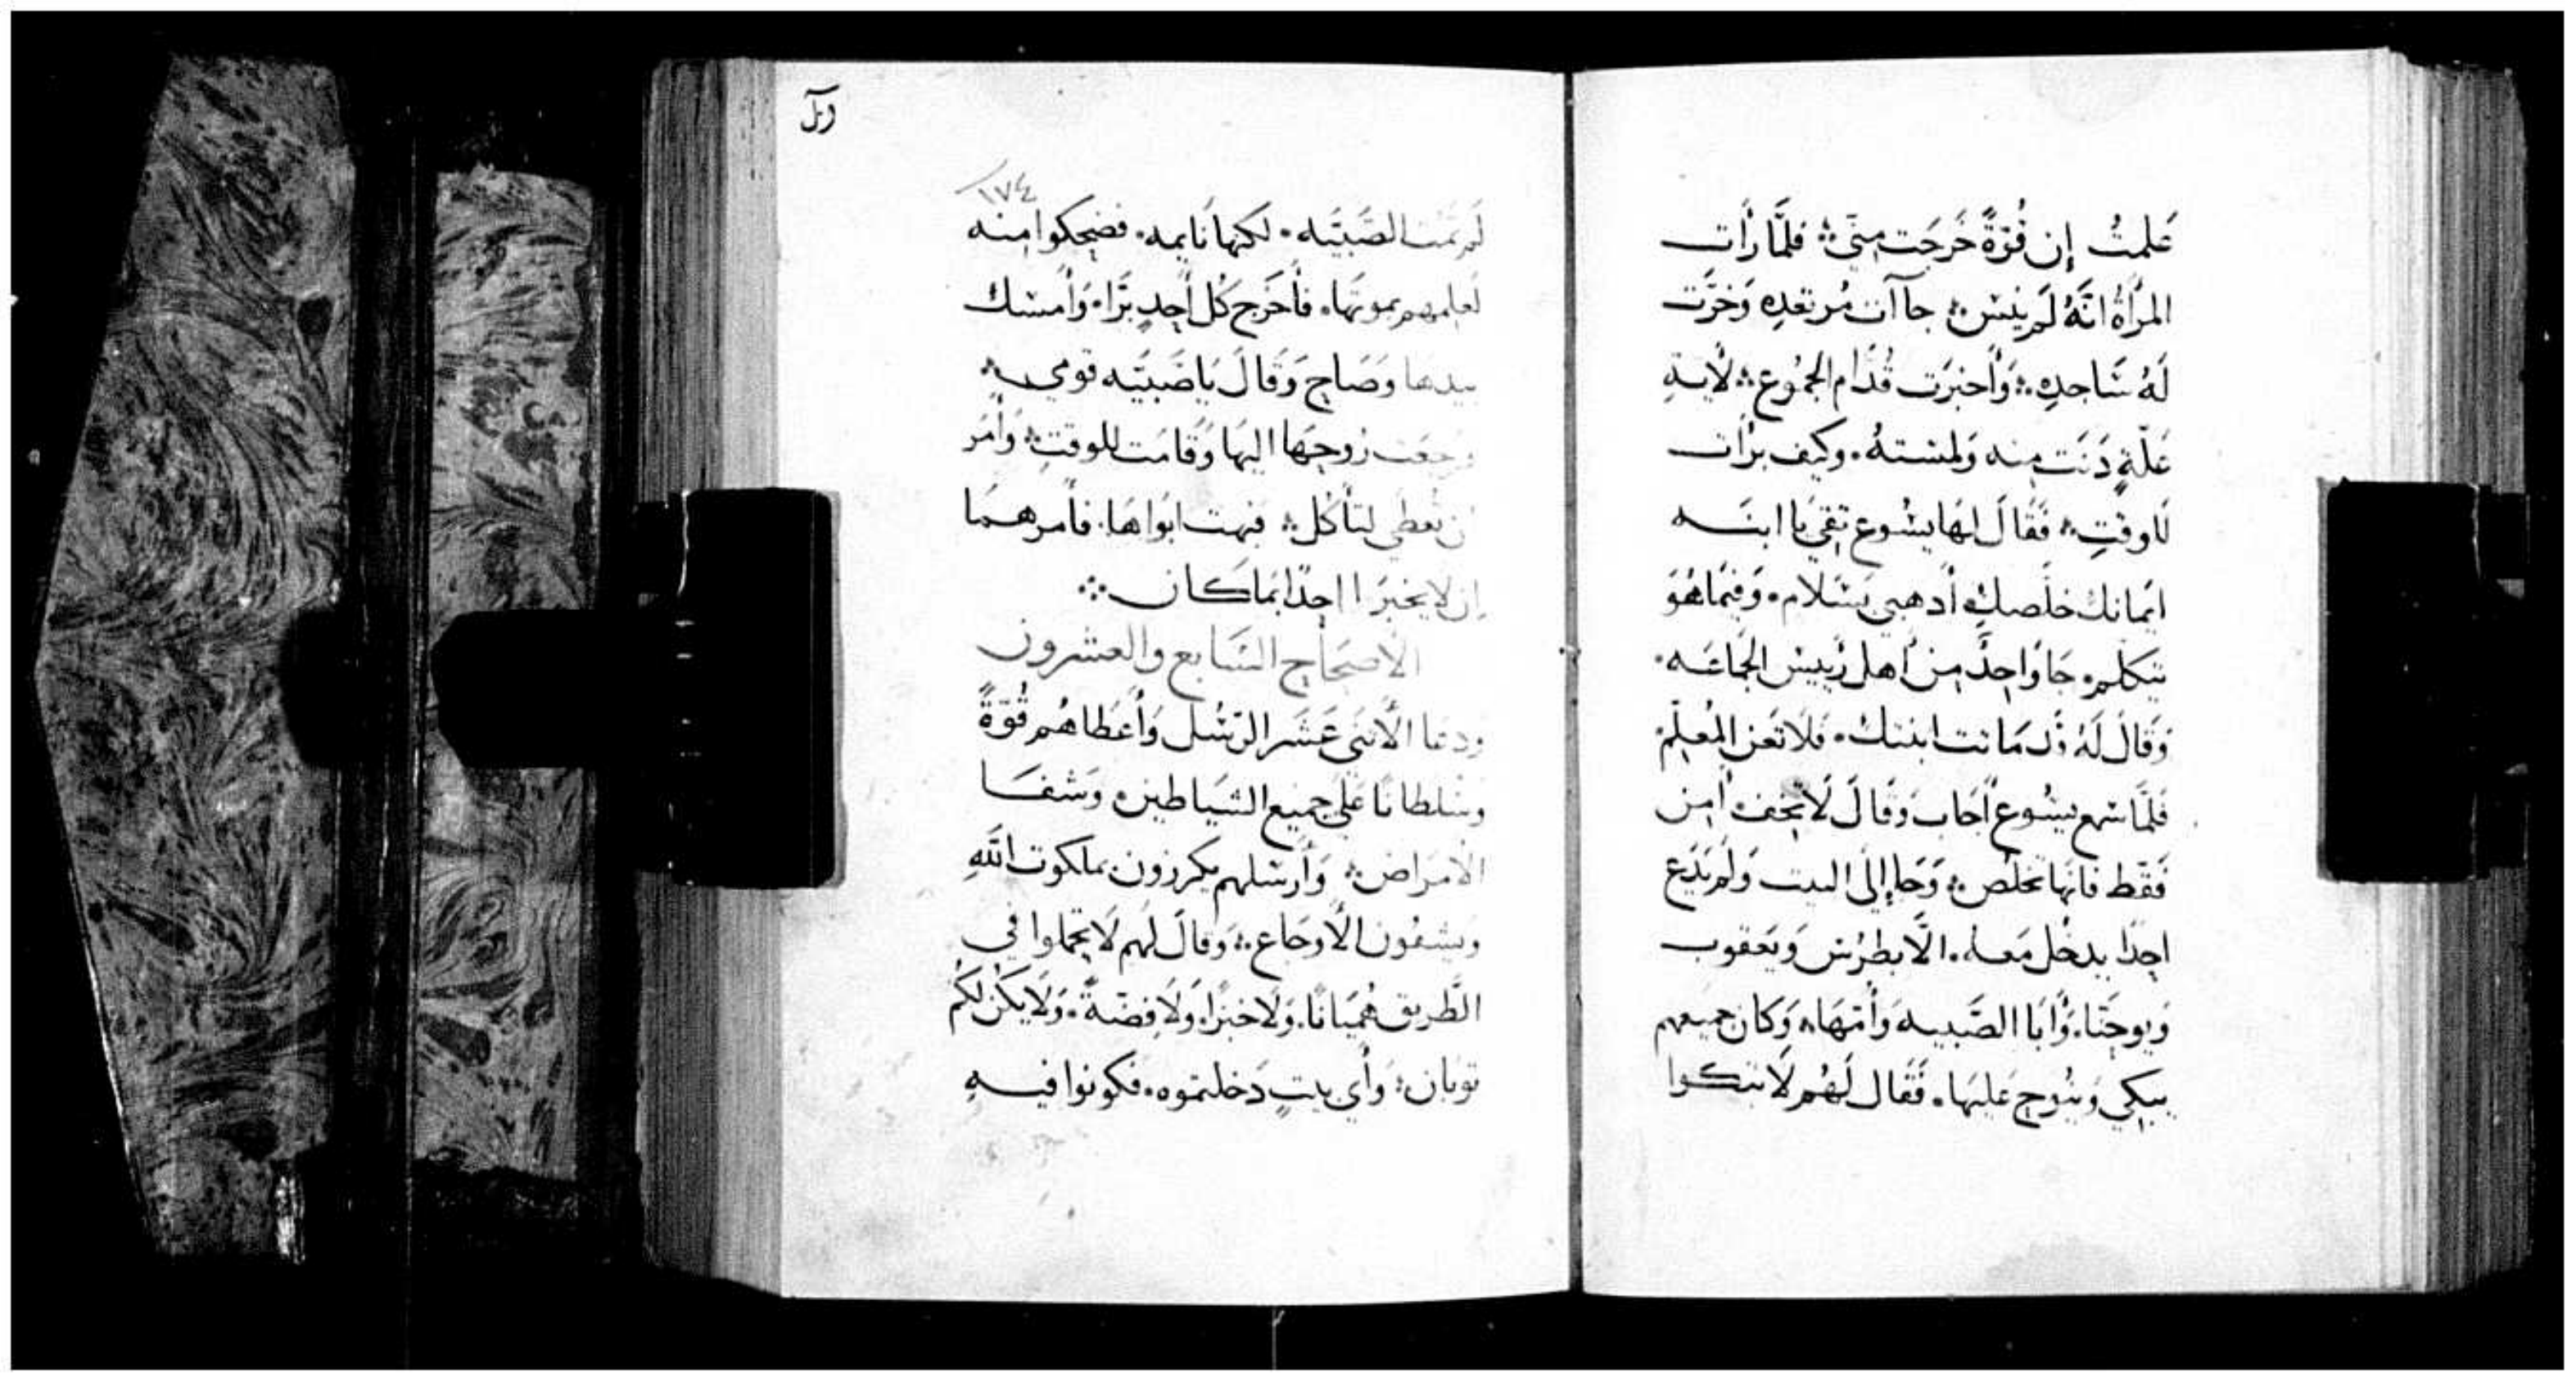 عَلمتُ إن قُوّةً خَرجَت مِنّي ܀ فلمَّا رأت
المرأةُ انّهُ لَم ينس ܀ جاآت مُرتعده وَخرَّت
لَهُ سَاجده ܀ وَأخبَرَت قُدّام الجمُوع ܀ لأيةِ
عَلّةٍ دَنَت منه وَلمسَتهُ ۰ وكيف برأت
للوقتِ ܀ فَقَالَ لهَا يسُوع ثقي يا ابنَه
ايمانك خلّصكِ أدهبي بسَلام ۰ وَفيمَا هُوَ
يتكلّم ۰ جَا وَاحدٌ من أهل رَييس الجمَاعَه ۰
وَقَالَ لَهُ قَد مَاتت ابنتك ۰ فَلا تَعَن المُعلِّم
فَلمَّا سَمع يسُوع أجَاب وَقَالَ لَا تخف ۰ أمن
فَقَط فانّهَا تخلُص ܀ وَجَا إلى البيت وَلم يَدَع
احدًا يدخل مَعه ۰ الّا بطرُس وَيَعقوب
وَيوحَنّا ۰ وَأبَا الصَّبيه وَأمّهَا ܀ وَكان جميعهم
يبكي وَيَنُوح عَليهَا ۰ فَقَال لَهُم لَا تبكوا
وىل
١٧٤
لَم تمُت الصَّبيَّه ۰ لكنها نَايمه ۰ فضحكوا منه
لعلمهم بموتهَا ۰ فأخرَج كُل أحدٍ برَّا ۰ وَأمسَك
بيدها وَصَاح وَقَالَ يَا صَبيَّه قومي ܀
فرجعَت رُوحهَا اليهَا وَقَامَت للوقتِ ܀ وَأمَر
ان تعطى لتأكل ܀ فبهت ابَواهَا ۰ فأمرهمَا
إن لا يخبرَا احدًا بمَا كان ܀
الأصحَاح السَّابع والعشرون
ودعَا الأثنَى عَشَر الرّسُل وَأعطاهُم قُوّةً
وسُلطانًا عَلى جميع الشيَاطين ۰ وَشفَا
الأمرَاض ܀ وَأرسَلهم يكرزون بملكوت اللّهِ
ويشفُون الأوجَاع ܀ وَقالَ لهم لَا تحملوا في
الطَّريق هُميَانًا ۰ وَلَا خبزًا وَلَا فِضّةً ۰ وَلَا يكُن لكُم
توبان ܀ وَأي بيتٍ دَخلتموه ۰ فكونوا فيهِ